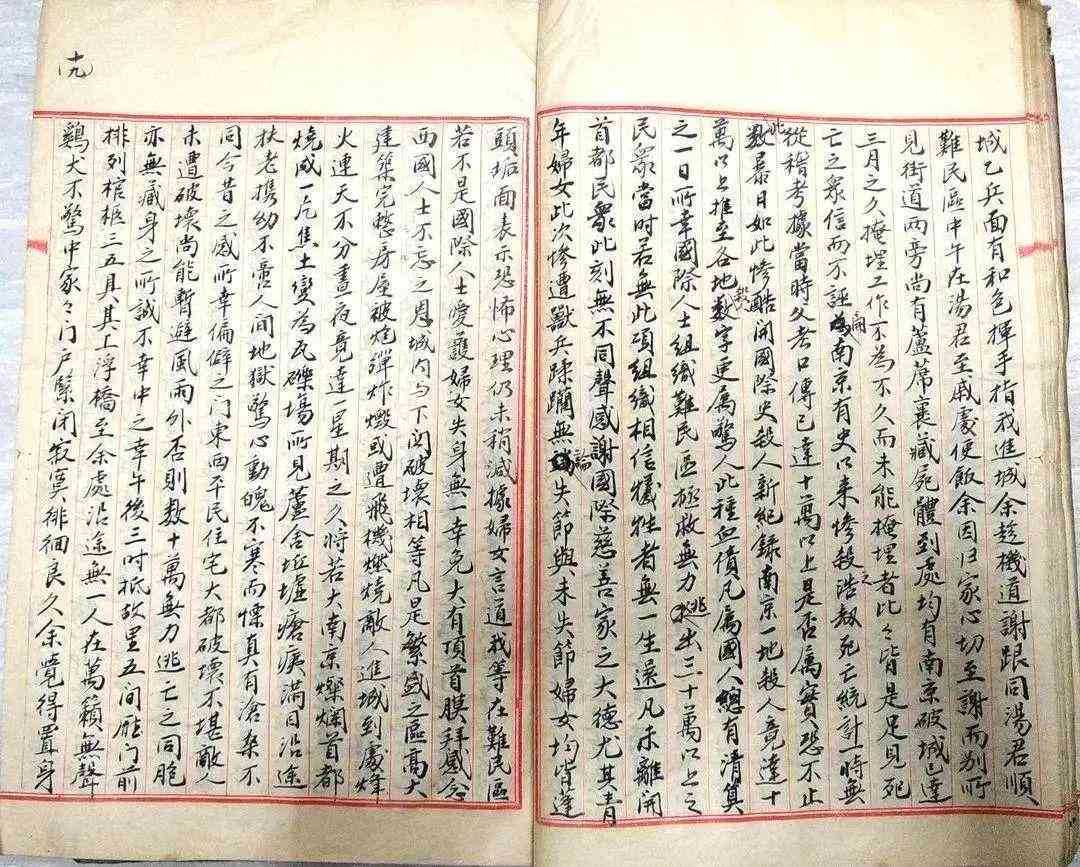 城乙兵面有和色揮手指我進城余趁機道謝跟同湯君順
難民區中午在湯君至戚處便飯余因归家心切至謝而别所
見街道两旁尚有蘆蓆裹藏屍體到處均有南京破城已達
三月之久掩埋工作不為不久而未能掩埋者比々皆是足見死
亡之衆信而不誣爾南京有史以来惨殺浩劫死亡統計一時無
從稽考據當時父老口傳已達十萬以上是否属實恐不止
此数暴日如此惨酷開國際史殺人新紀録南京一地殺人竟達十
萬以上推至各地殺数字更属驚人此種血債凡属國人總有清算
之一日所幸國際人士組織難民區拯救無力逃出二十萬以上之
民衆當时若無此項組織相信犧牲者無一生還凡未離開
首都民衆此刻無不同聲感謝國際慈善家之大德尤其青
年婦女此次惨遭獸兵蹂躏無論失節與未失節婦女均皆蓬
頭垢面表示恐怖心理仍未稍减據婦女言道我等在難民區
若不是國際人士愛護婦女失身無一幸免大有頂首膜拜感念
西國人士不忘之恩城内与下関破壞相等凡是繁盛之區高大
建築完整房屋被炮彈炸燬或遭飛機燃燒敵人進城到處烽
火連天不分晝夜竟達一星期之久將若大南京燦爛首都
燒成一片焦土變為瓦礫場所見蘆舍垃墟瘡痍满目沿途
扶老携幼不啻人間地獄驚心動魄不寒而慄真有滄桑不
同今昔之感所幸偏僻之门東西平民住宅大都破壞不堪敵人
未遭破壞尚能暫避風雨外否則数十萬無力逃亡之同胞
亦無藏身之所誠不幸中之幸午後三时抵故里五间廳门前
排列棺柩三五具其上浮橋至余處沿途無一人在萬籟無聲
鷄犬不驚中家々门户緊闭寂寞徘徊良久余覺得置身
十九